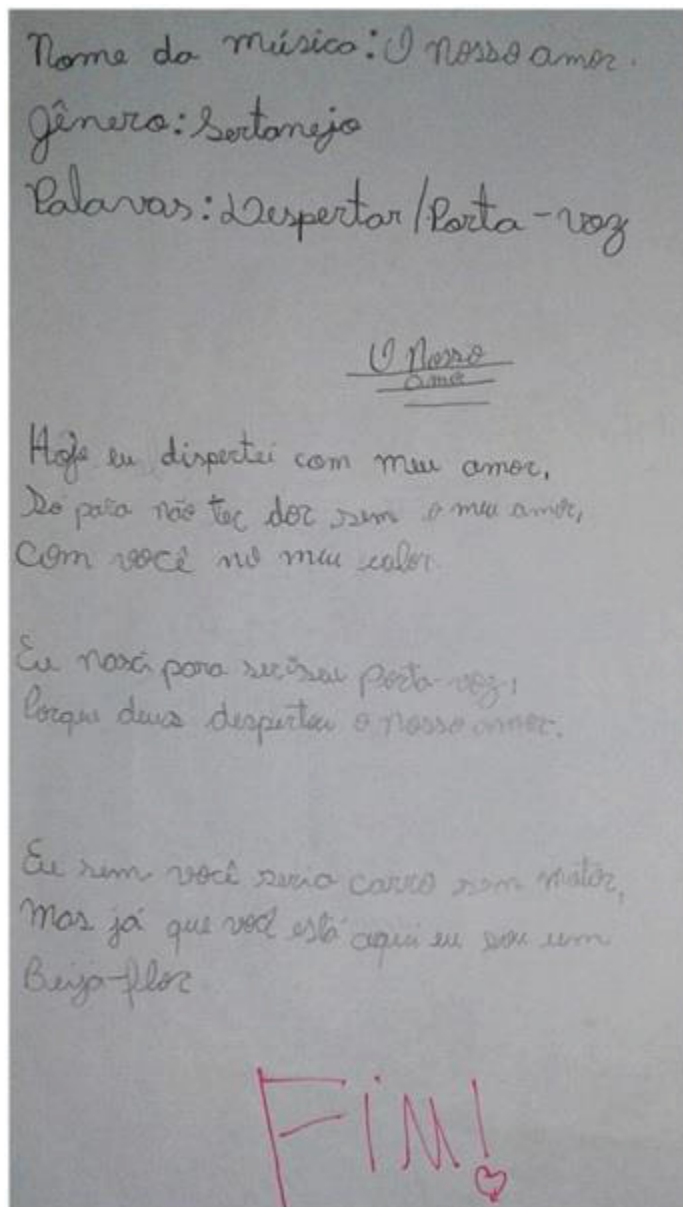 Nome da música: O nosso amor.
Gênero: Sertanejo
Palavas: Despertar/Porta-voz
O Nosso
amor
Hoje eu dispertei com meu amor,
Do para não ter dor sem o meu amor,
com você no meu calor.
Eu nasci para ser seu porta-voz,
Porque deus despertou o nosso amor.
Eu sem você seria carro sem motor,
Mas já que você está aqui eu sou um
Beija-flor.
FIM!